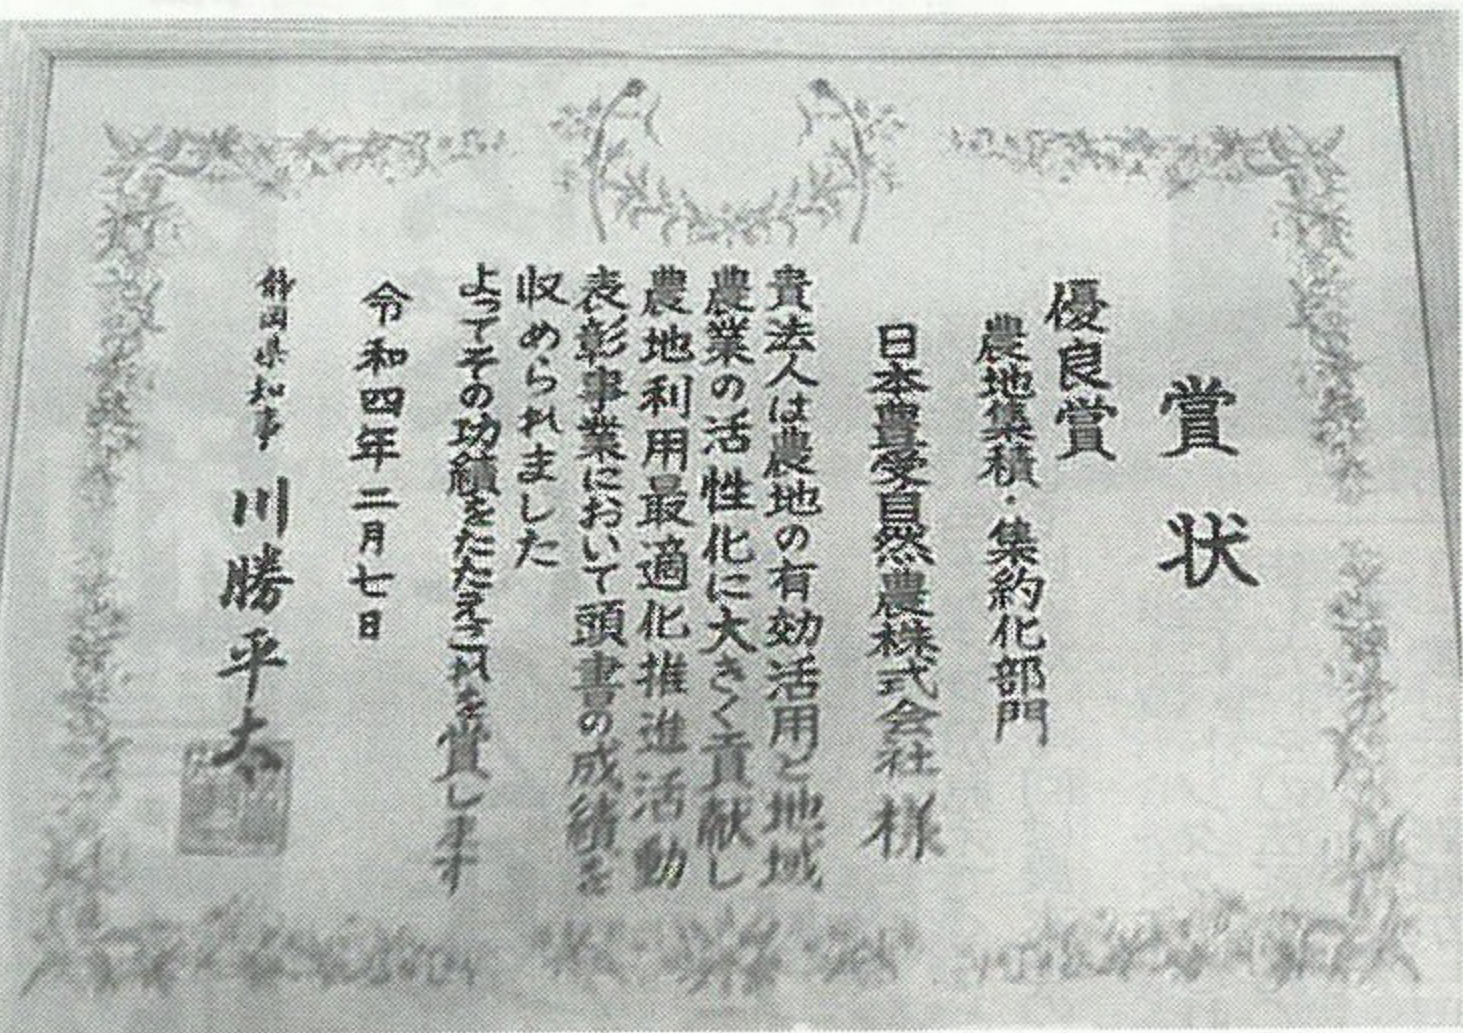 賞状
優良賞
農地集積・集約化部門
日本豊受自然農株式会社様
貴法人は農地の有効活用と地域
農業の活性化に大きく貢献し
農地利用最適化推進活動
表彰事業において頭書の成績を
収められました
よってその功績をたたえこれを賞します
令和四年二月七日
静岡県知事 川勝平太